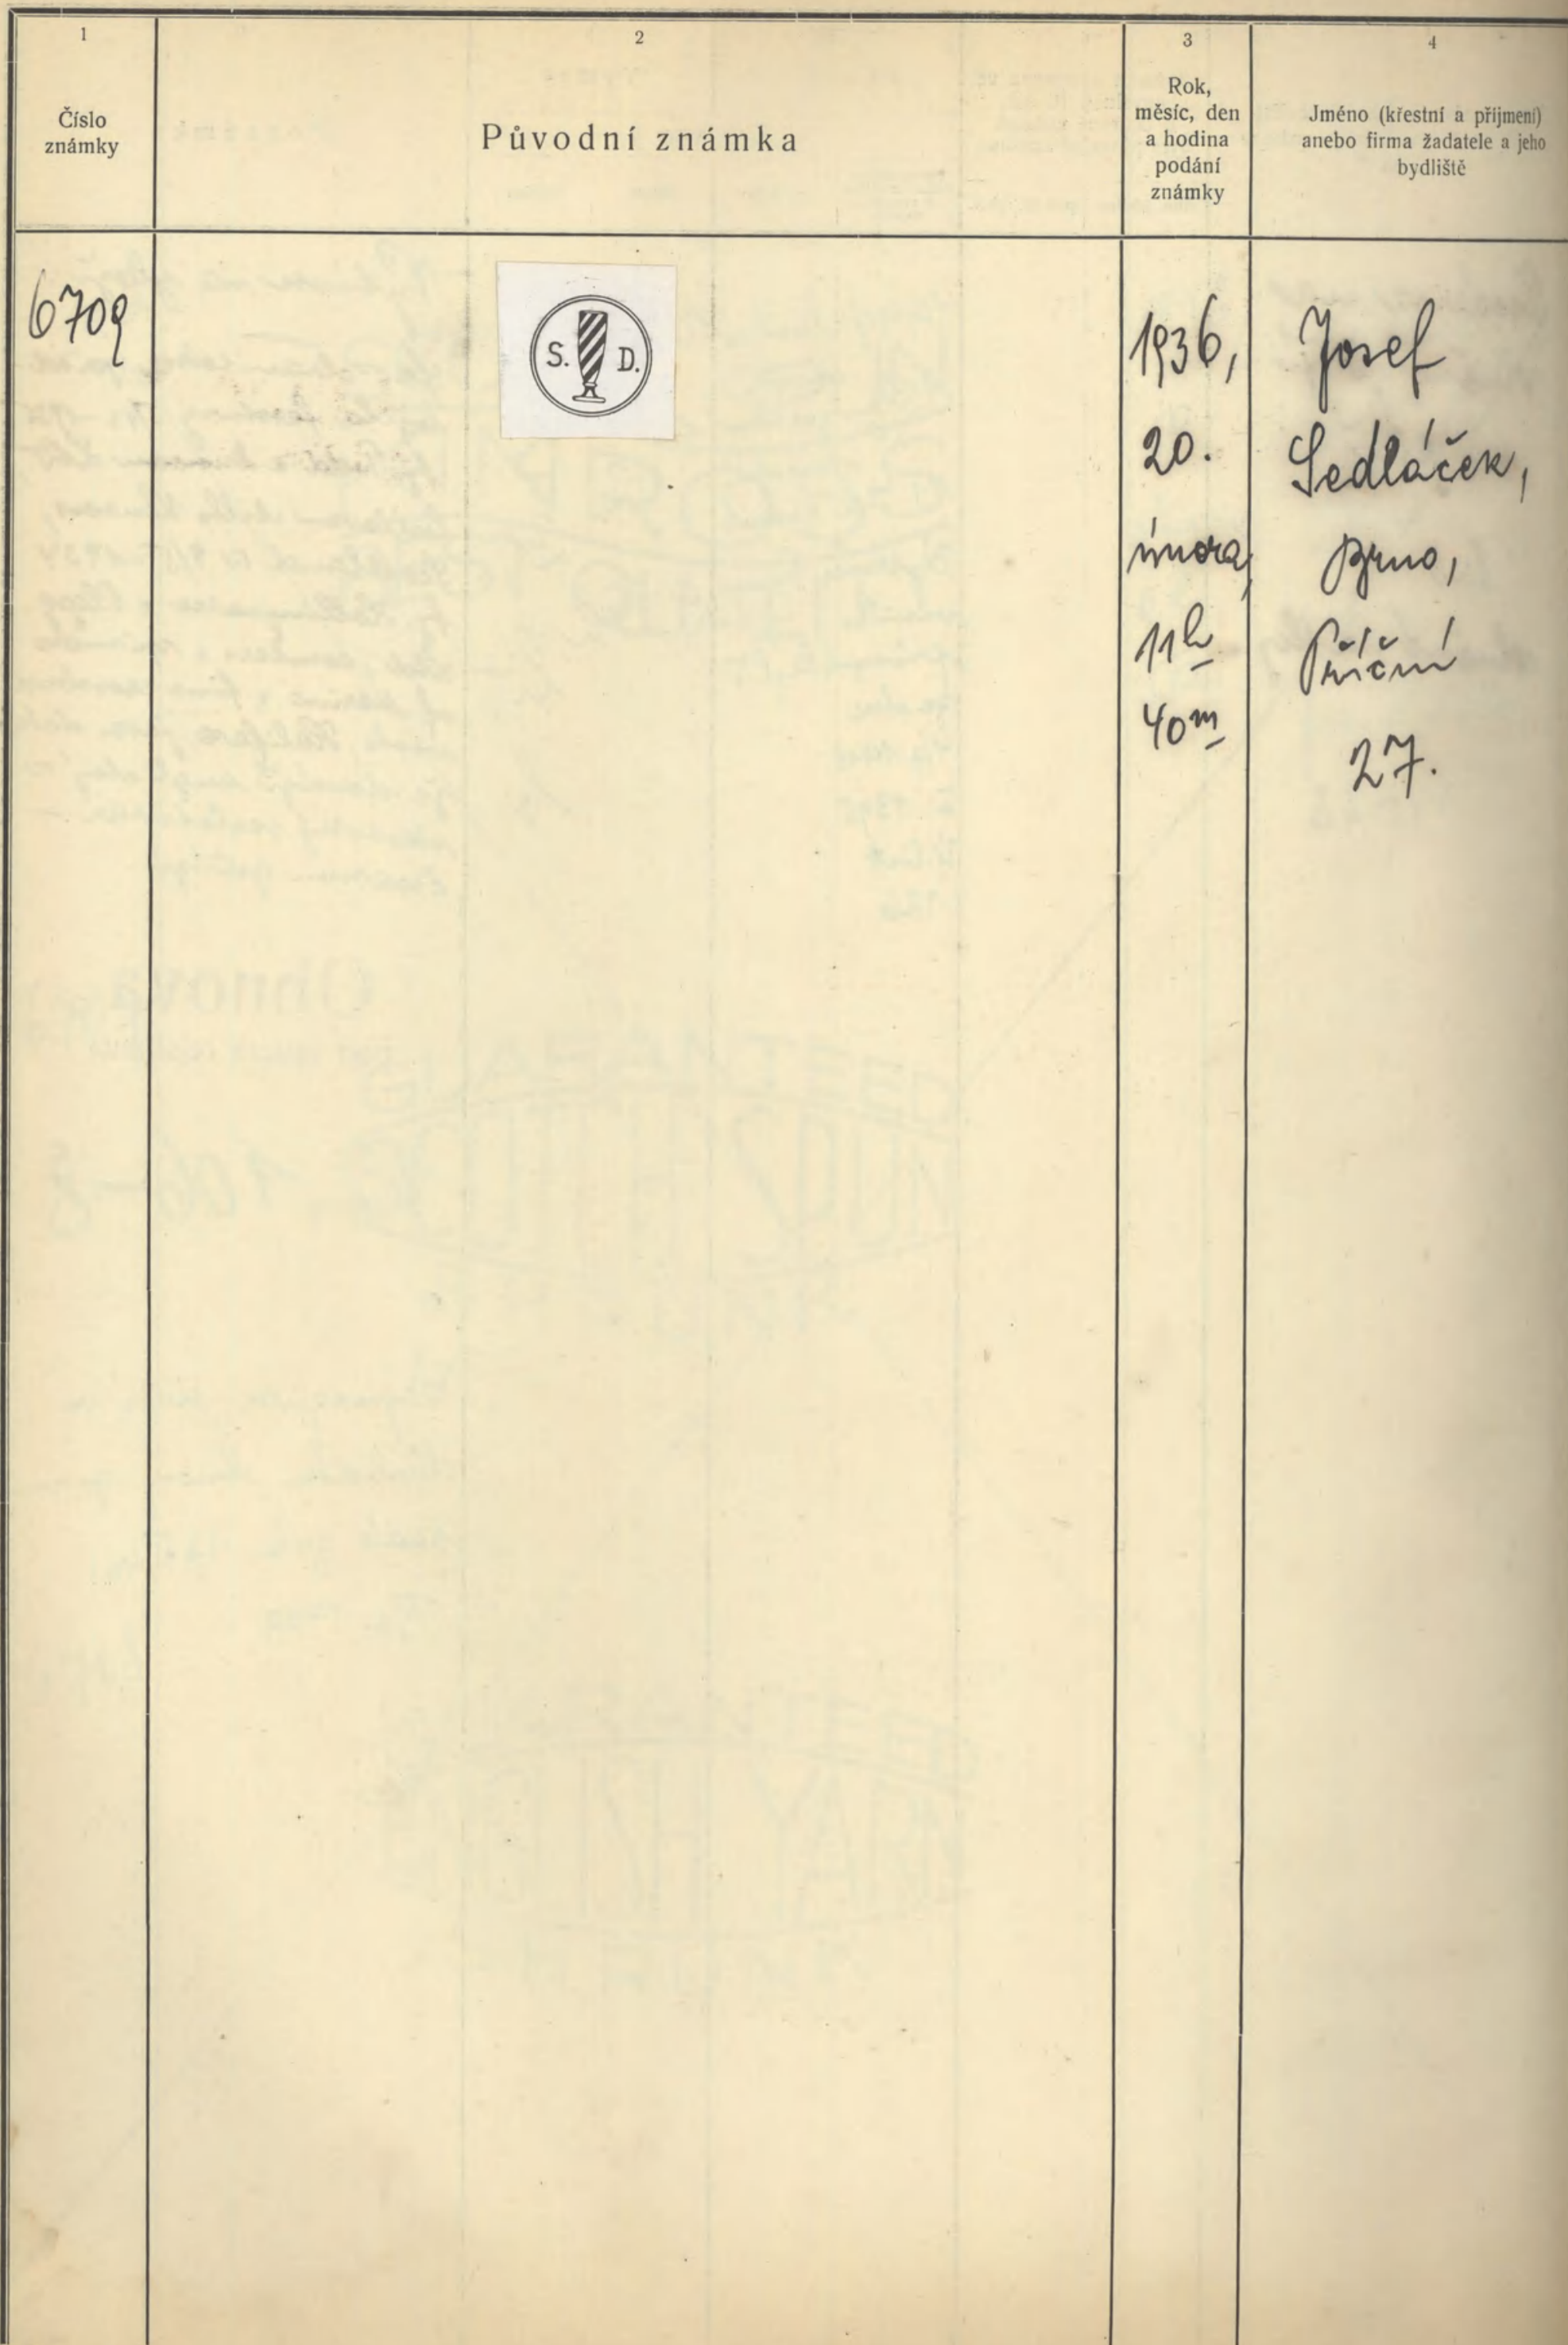 1
Číslo
známky
2
Původní známka
3
Rok,
měsíc, den
a hodina
podání
známky
4
Jméno (křestní a příjmení)
anebo firma žadatele a jeho
bydliště
6709
S. D.
1936,
20.
února,
11h
40m
Josef
Sedláček,
Brno,
Příční
27.